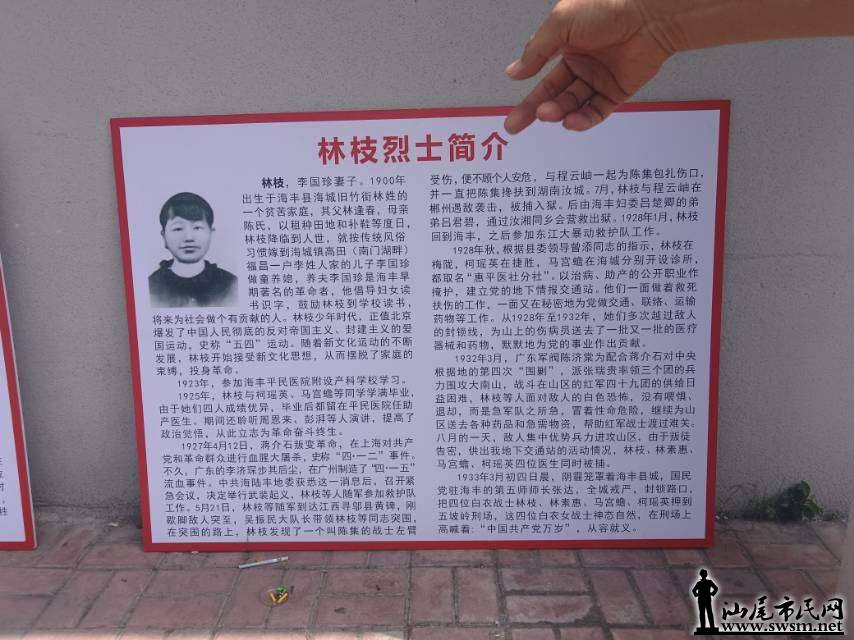 林枝烈士简介
林枝，李国珍妻子。1900年
出生于海丰县海城旧竹街林姓的
一个贫苦家庭，其父林逢春，母亲
陈氏，以租种田地和补鞋等度日，
林枝降临到人世，就按传统风俗
习惯嫁到海城镇高田（南门湖畔）
福昌一户李姓人家的儿子李国珍
做童养媳，养夫李国珍是海丰早
期著名的革命者，他倡导妇女读
书识字，鼓励林枝到学校读书，
将来为社会做个有贡献的人。林枝少年时代，正值北京
爆发了中国人民彻底的反对帝国主义、封建主义的爱
国运动，史称“五四”运动。随着新文化运动的不断
发展，林枝开始接受新文化思想，从而摆脱了家庭的
束缚，投身革命。
1923年，参加海丰平民医院附设产科学校学习。
1925年，林枝与柯瑶英、马宫蟾等同学学满毕业，
由于她们四人成绩优异，毕业后都留在平民医院任助
产医生。期间还聆听周恩来、彭湃等人演讲，提高了
政治觉悟，从此立志为革命奋斗终生。
1927年4月12日，蒋介石叛变革命，在上海对共产
党和革命群众进行血腥大屠杀，史称“四·一二”事件。
不久，广东的李济琛步其后尘，在广州制造了“四·一五”
流血事件。中共海陆丰地委获悉这一消息后，召开紧
急会议，决定举行武装起义，林枝等人随军参加救护队
工作。5月21日，林枝等随军到达江西寻邬县黄碑，刚
歇脚敌人突至，吴振民大队长带领林枝等同志突围，
在突围的路上，林枝发现了一个叫陈集的战士左臂
受伤，便不顾个人安危，与程云岫一起为陈集包扎伤口，
并一直把陈集搀扶到湖南汝城。7月，林枝与程云岫在
郴州遇敌袭击，被捕入狱。后由海丰妇委吕楚卿的弟
弟吕君碧，通过汝湘同乡会营救出狱。1928年1月，林枝
回到海丰，之后参加东江大暴动救护队工作。
1928年秋，根据县委领导曾添同志的指示，林枝在
梅陇，柯瑶英在捷胜，马宫蟾在海城分别开设诊所，
都取名“惠平医社分社”。以治病、助产的公开职业作
掩护，建立党的地下情报交通站。他们一面做着救死
扶伤的工作，一面又在秘密地为党做交通、联络、运输
药物等工作。从1928年至1932年，她们多次越过敌人
的封锁线，为山上的伤病员送去了一批又一批的医疗
器械和药物，默默地为党的事业作出贡献。
1932年3月，广东军阀陈济棠为配合蒋介石对中央
根据地的第四次“围剿”，派张瑞贵率领三个团的兵
力围攻大南山，战斗在山区的红军四十九团的供给日
益困难，林枝等人面对敌人的白色恐怖，没有喂惧、
退却，而是急军队之所急，冒着性命危险，继续为山
区送去各种药品和急需物资，帮助红军战士渡过难关。
八月的一天，敌人集中优势兵力进攻山区，由于叛徒
告密，供出我地下交通站的活动情况，林枝、林素惠、
马宫蟾、柯瑶英四位医生同时被捕。
1933年3月初四日晨，阴霾笼罩着海丰县城，国民
党驻海丰的第五师师长张达，全城戒严，封锁路口，
把四位白衣战士林枝、林素惠、马宫蟾、柯瑶英押到
五坡岭刑场，这四位白衣女战士神态自然，在刑场上
高喊着：“中国共产党万岁”，从容就义。
汕尾市民网
www.swsm.net